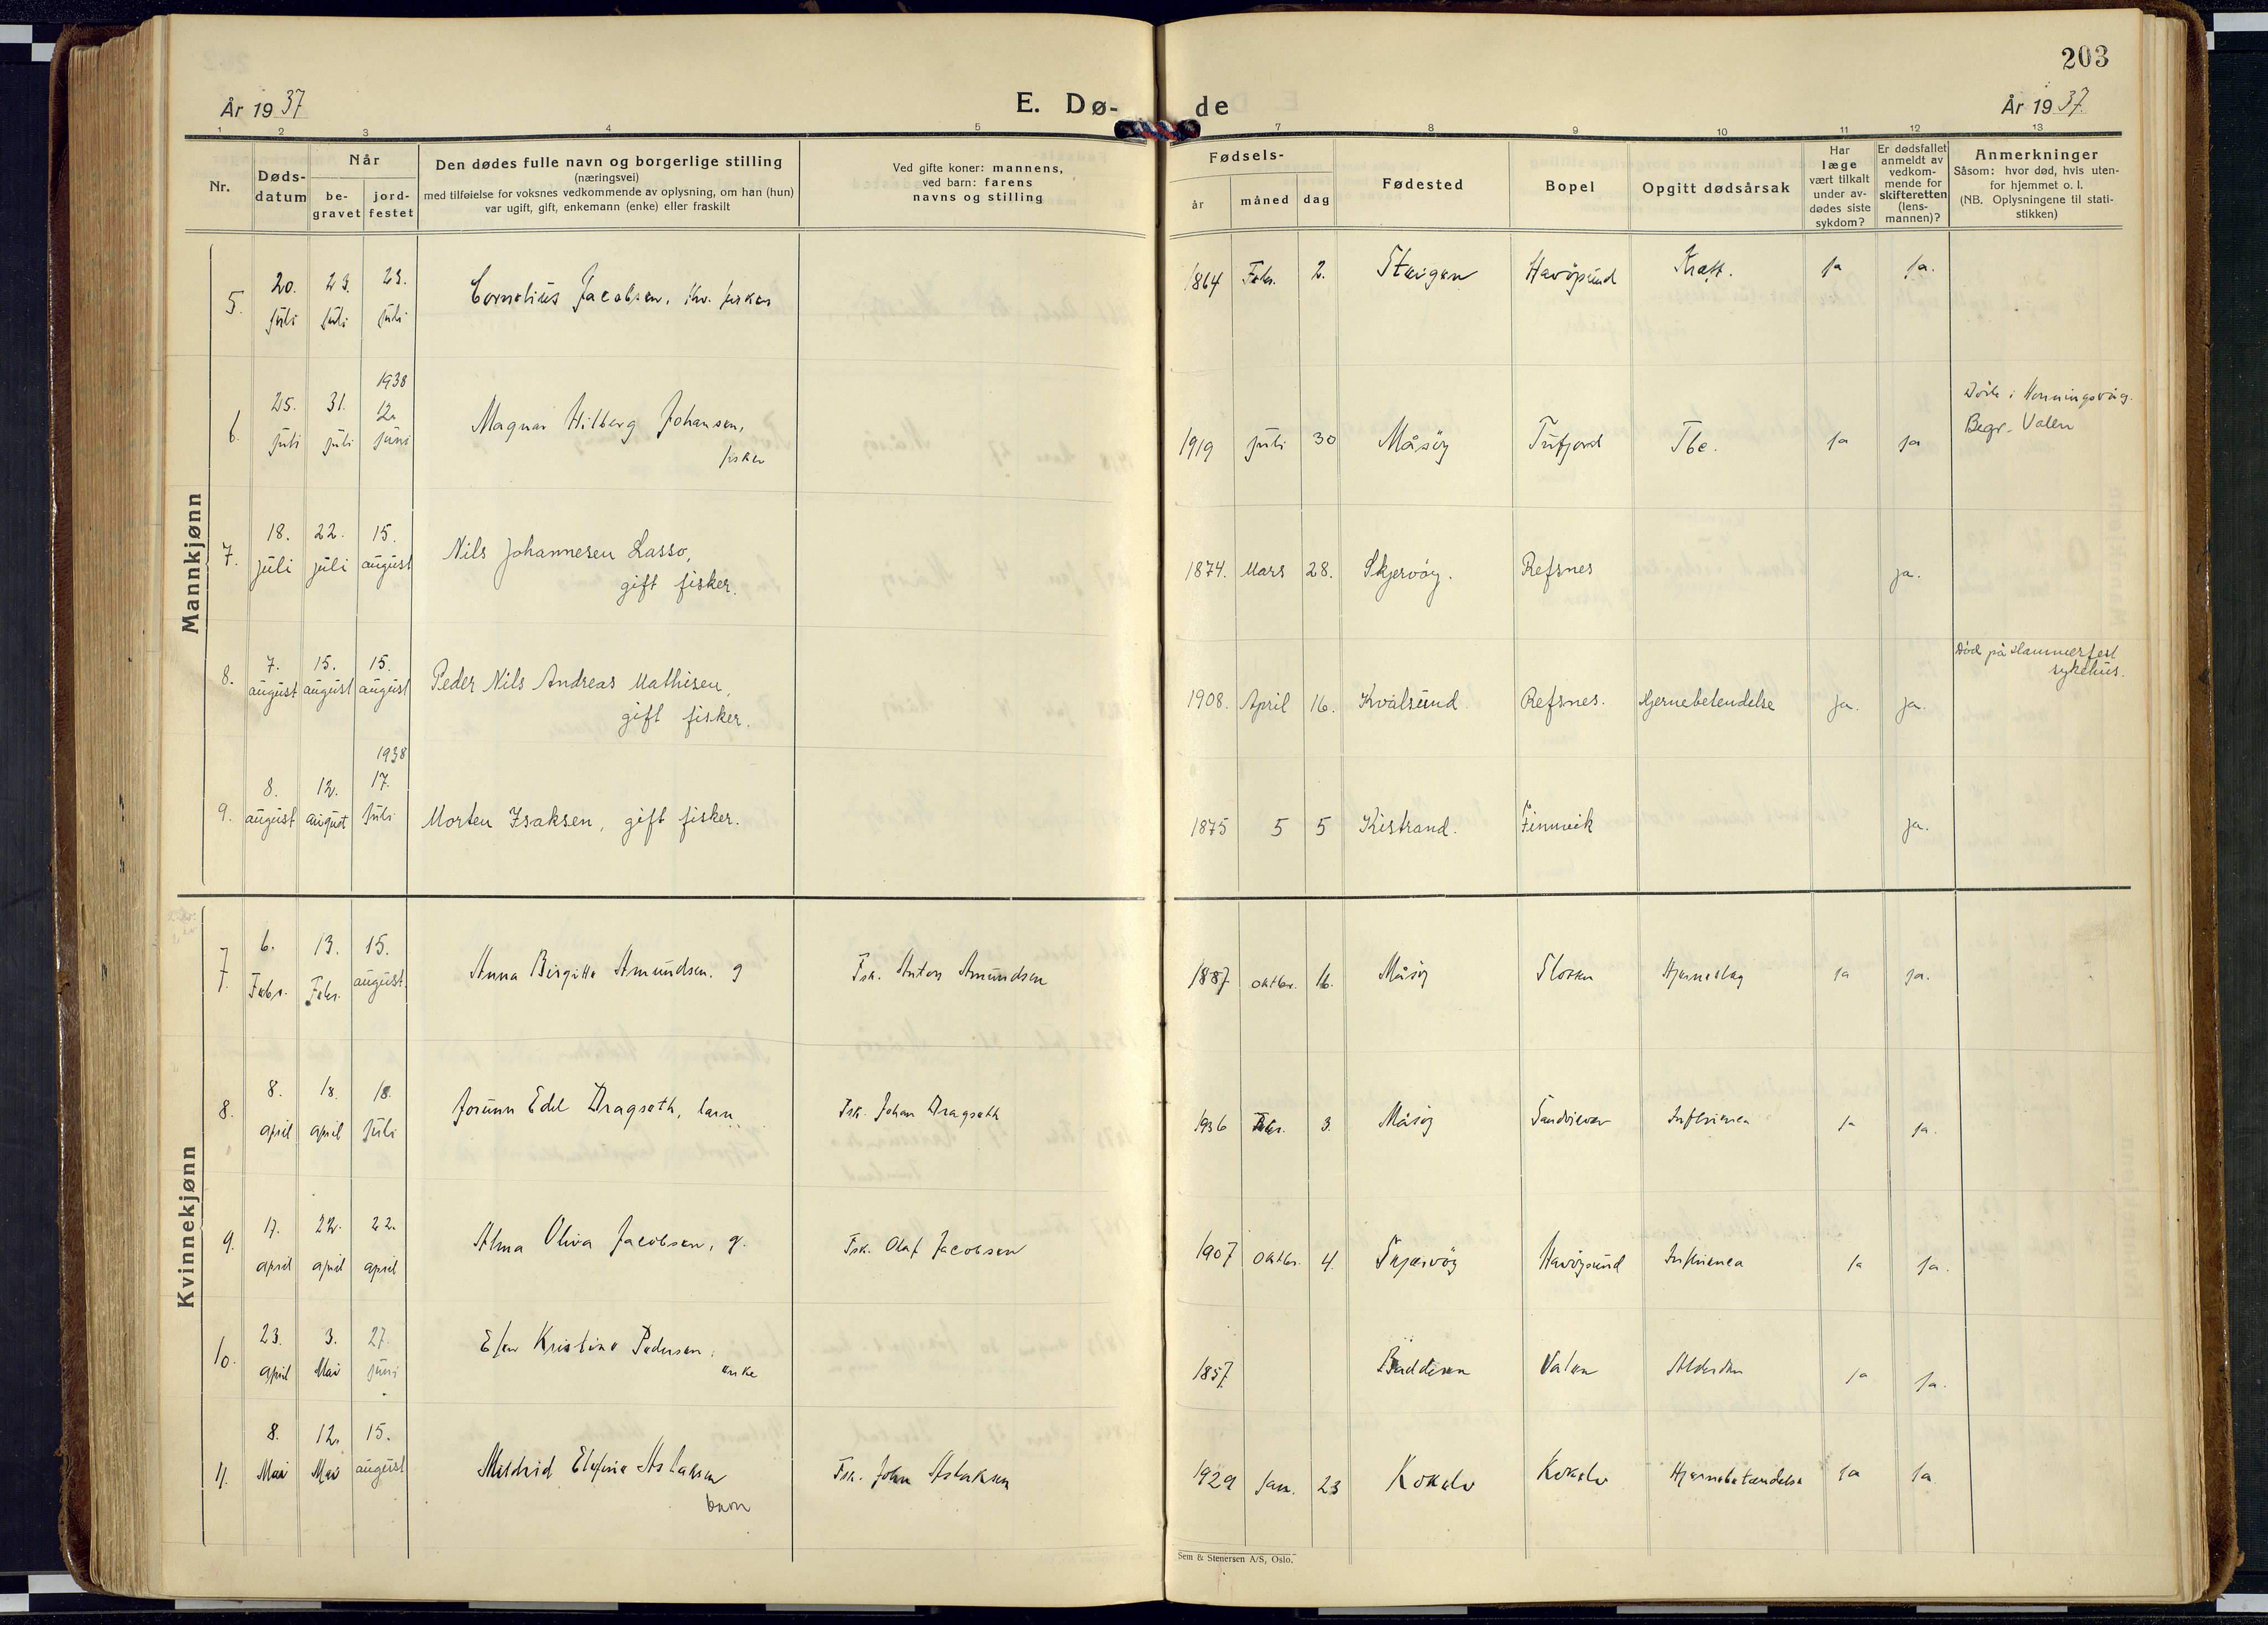 203
År 1937
E. Dø-
de
År 1937.
1 2 3 4 5 7 8 9 10 11 12 13
Nr.
Døds-
datum
Når
be-
gravet
jord-
festet
Den dødes fulle navn og borgerlige stilling
(næringsvei)
med tilføielse for voksnes vedkommende av oplysning, om han (hun)
var ugift, gift, enkemann (enke) eller fraskilt
Ved gifte koner: mannens,
ved barn: farens
navns og stilling
Fødsels-
år måned dag
Fødested
Bopel
Opgitt dødsårsak
Har
læge
vært tilkalt
under av-
dødes siste
sykdom?
Er dødsfallet
anmeldt av
vedkom-
mende for
skifteretten
(lens-
mannen)?
Anmerkninger
Såsom: hvor død, hvis uten-
for hjemmet o. l.
(NB. Oplysningene til stati-
stikken)
Mannkjønn
5. 20. juli 23. juli 23. juli Cornelius Jacobsen, fisker 1864 Febr. 2. Steigen Havöysund Kreft. ja ja.
6. 25. juli 31. juli 1938 12. juni Magnar Hilberg Johansen,
fisker 1919 juli 30 Måsöy Tufjord Tbc. ja ja Döde i Honningsvåg.
Begr. Valen
7. 18. juli 22. juli 15. august Nils Johannesen Lasso,
gift fisker. 1874. Mars 28. Skjervöy. Refsnes ja.
8. 7. august 15. august 15. august Peder Nils Andreas Mathisen,
gift fisker. 1908. April 16. Kvalsund Refsnes. Hjernebetendelse ja. ja. Död på Hammerfest
sykehus.
9. 8. august 12. august 1938 17. juli Morten Isaksen, gift fisker. 1875 5 5 Kistrand. Finnvik ja.
Kvinnekjønn
7. 6. Febr. 13. Febr. 15. august. Anna Birgitte Amundsen. g Fsk. Anton Amundsen 1887 oktbr. 16. Måsöy Slotten Hjerneslag ja ja.
8. 8. april 18. april 18. juli Jorunn Edel Dragseth, barn Fsk. Johan Dragseth 1936 Febr. 3. Måsöy Influensa ja ja.
9. 17. april 22. april 22. april Alma Oliva Jacobsen, g. Fsk. Olaf Jacobsen 1907 Oktbr. 4. Skjervöy Havöysund Influensa ja ja.
10. 23. april 3. Mai 27. juni Kristine Pedersen,
enke 1857 Valen Alderdom ja ja.
11. 8. Mai 12. Mai 15. august Mildrid Elefine Aslaksen
barn Fsk. John Aslaksen 1929 Jan. 23 Kokelv Kokelv Hjernebetændelse ja ja
Sem & Stenersen A/S, Oslo.